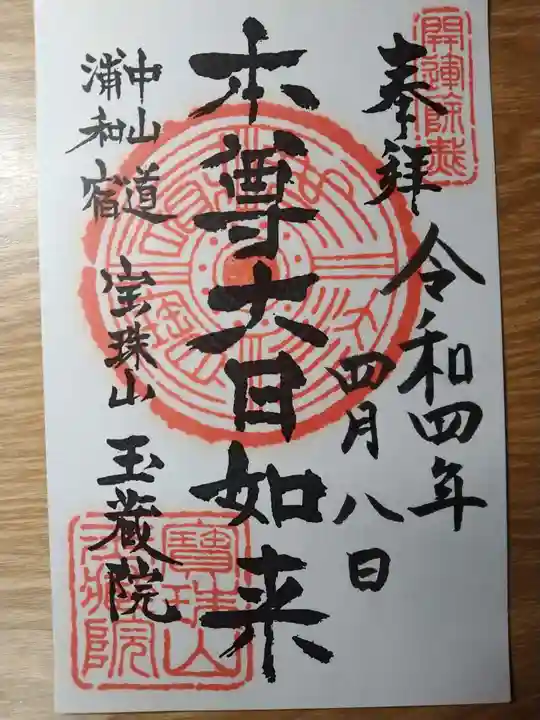 奉拝
令和四年
四月八日
本尊大日如来
中山道
浦和宿
宝珠山
玉蔵院
寶珠山
玉蔵院